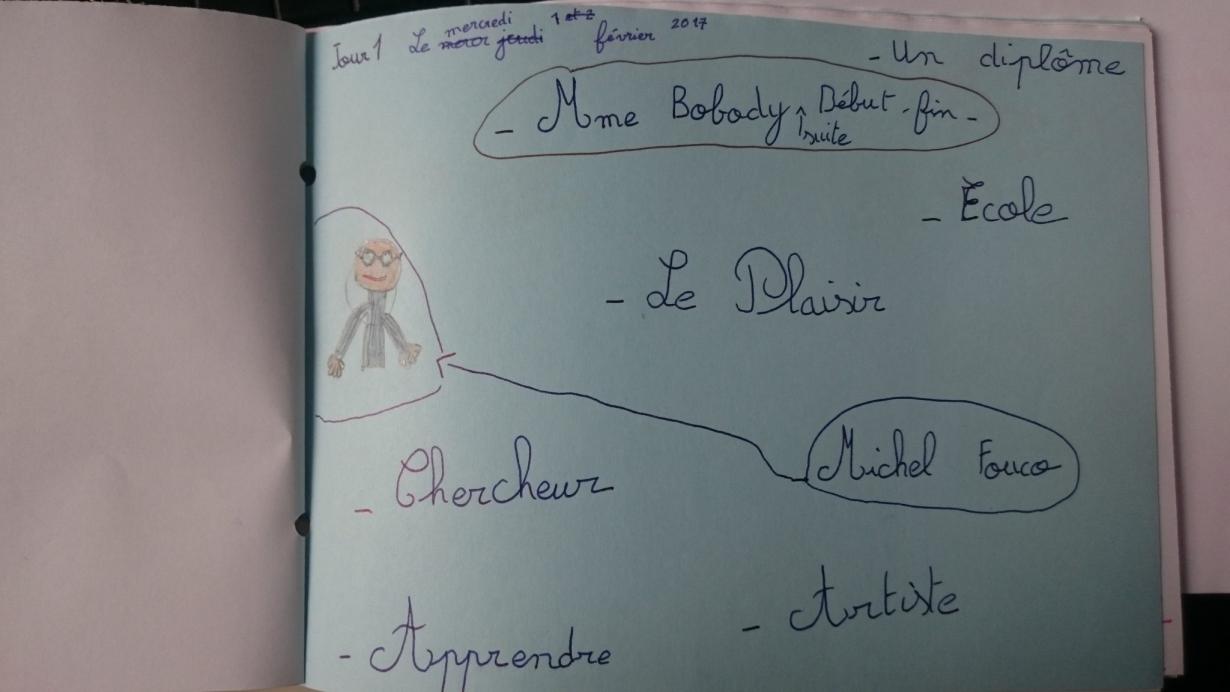 Jour 1 Le mercredi jeudi 1 et 2 février 2017
- Un diplôme
- Mme Bobody, Début - fin -
suite
- École
- Le Plaisir
Michel Fouco
- Chercheur
- Artiste
- Apprendre